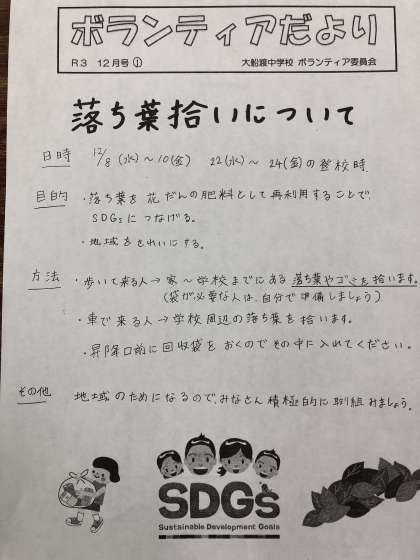 ボランティアだより
R3 12月号① 大船渡中学校 ボランティア委員会
落ち葉拾いについて
日時 12/8(水)~10(金) 22(水)~24(金)の登校時
目的 ・落ち葉を花だんの肥料として再利用することで、
SDGsにつなげる。
・地域をきれいにする。
方法 ・歩いて来る人→家~学校までにある落ち葉やゴミを拾います。
(袋が必要な人は、自分で準備しましょう)
・車で来る人→学校周辺の落ち葉を拾います。
・昇降口前に回収袋をおくのでその中に入れてください。
その他 地域のためになるので、みなさん積極的に取組みましょう。
SDGs
Sustainable Development Goals